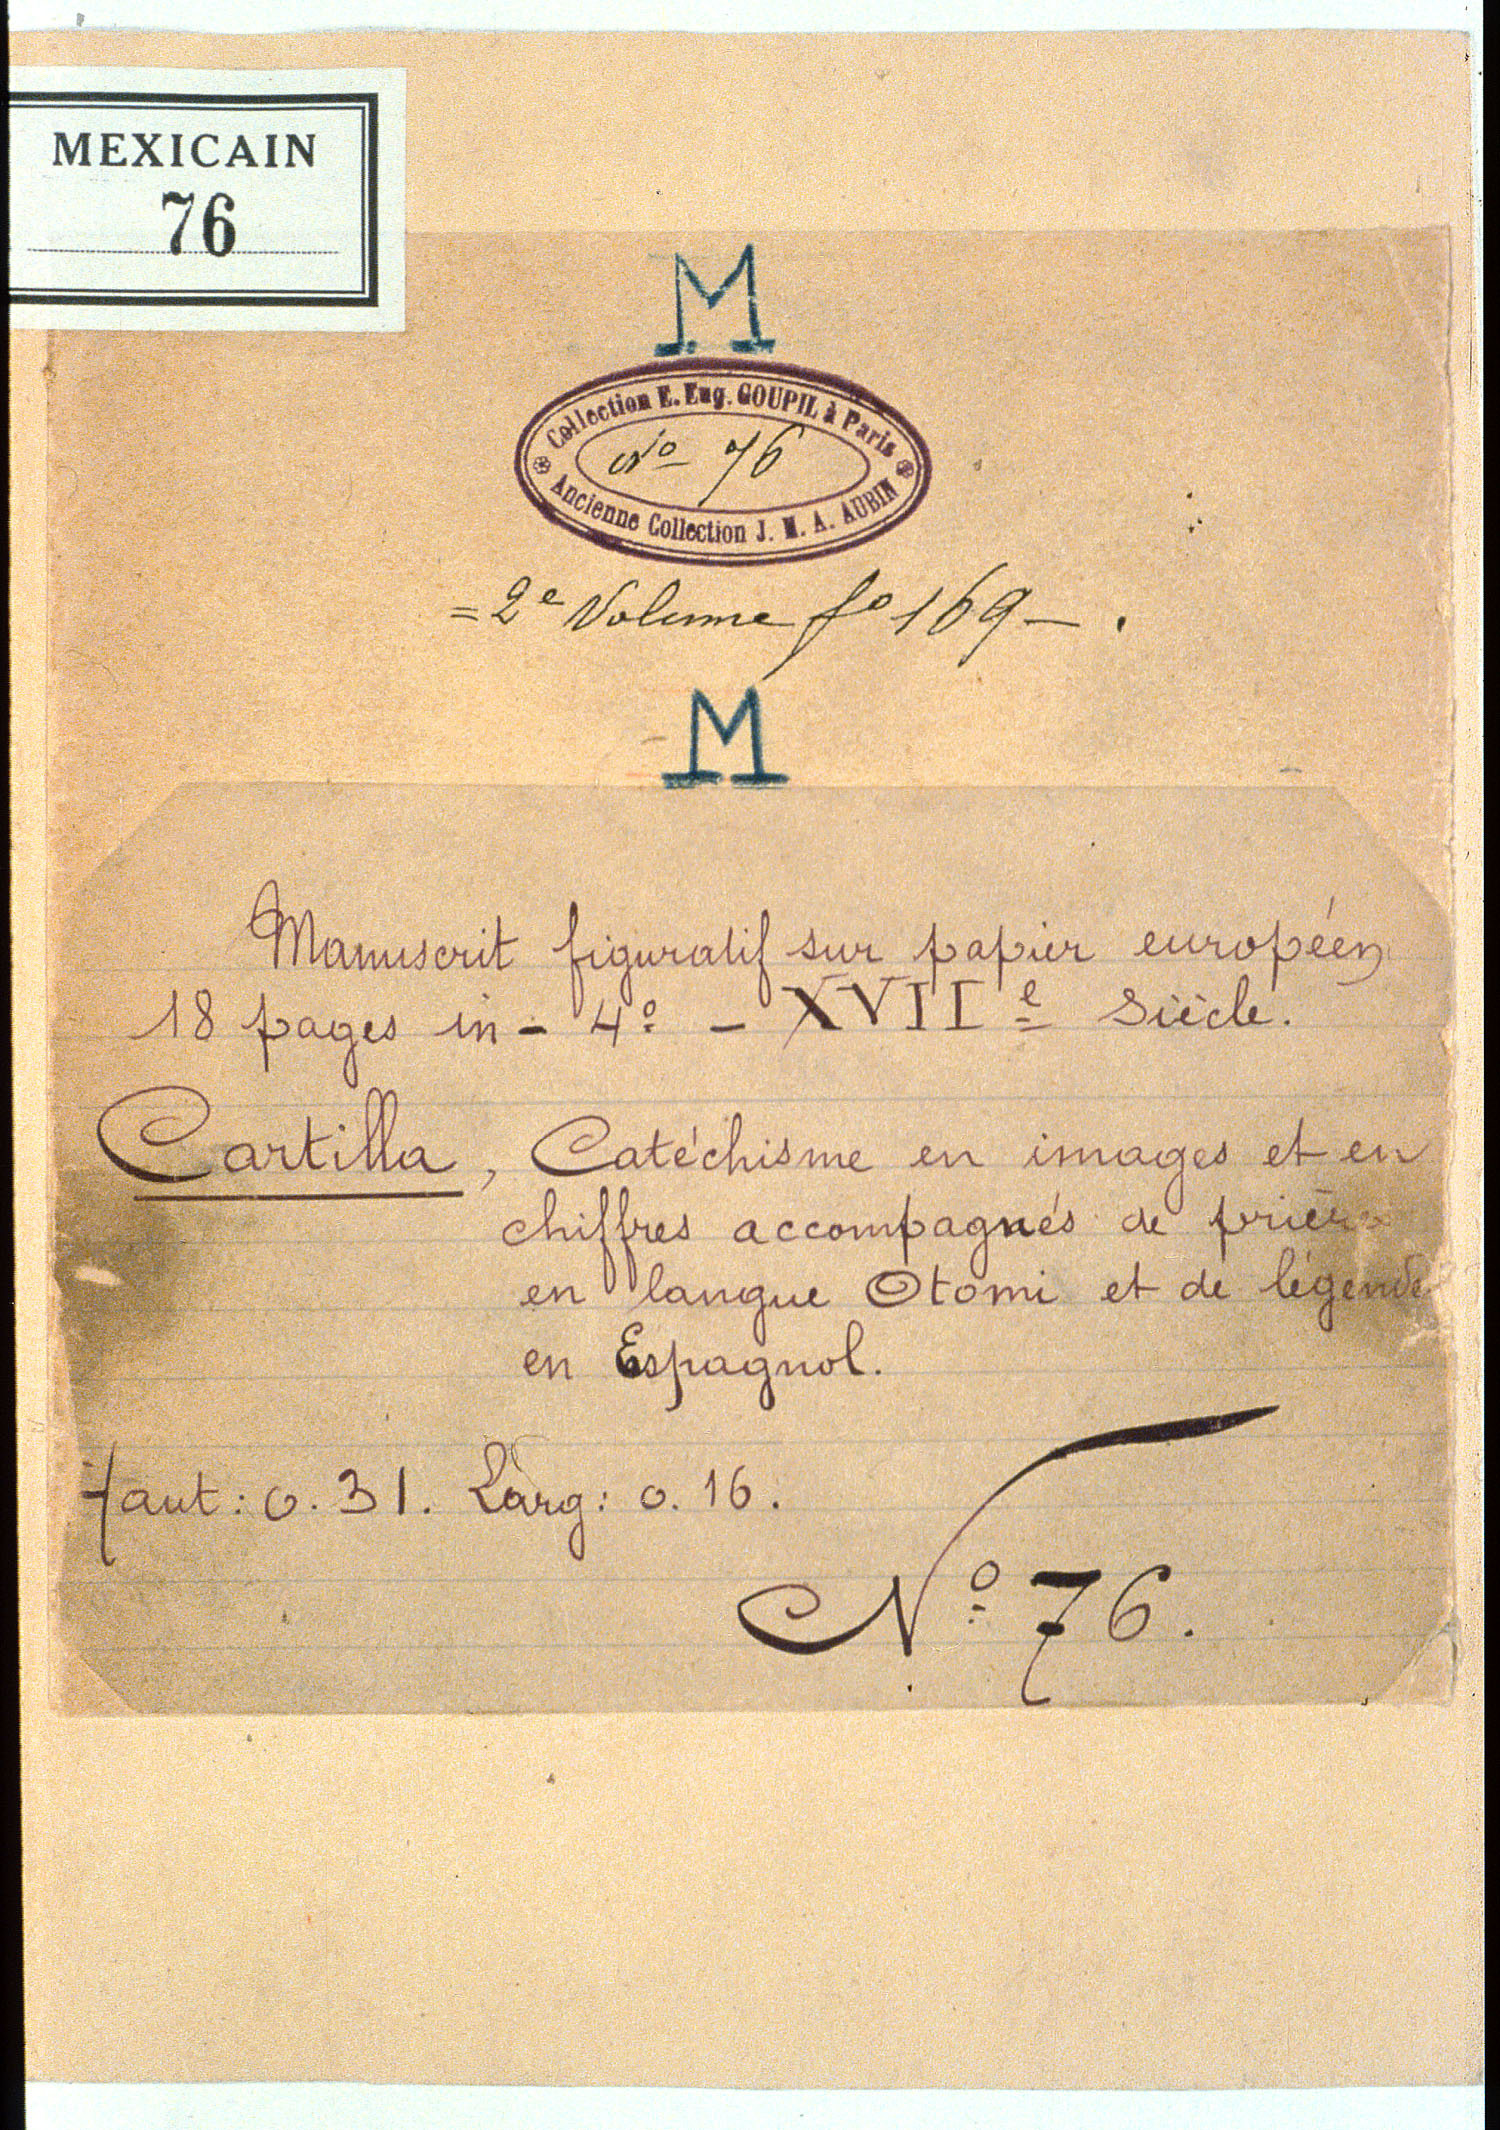 MEXICAIN
76
M
Collection E. Eug. GOUPIL à Paris
No 76
Ancienne Collection J. M. A. AUBIN
= 2e Volume fo 169 — .
M
Manuscrit figuratif sur papier européen
18 pages in - 4o. - XVIIe Siècle.
Cartilla, Catéchisme en images et en
chiffres accompagnés de prières
en langue Otomi et de légende
en Espagnol.
Haut: 0.31. Larg: 0.16.
No 76.